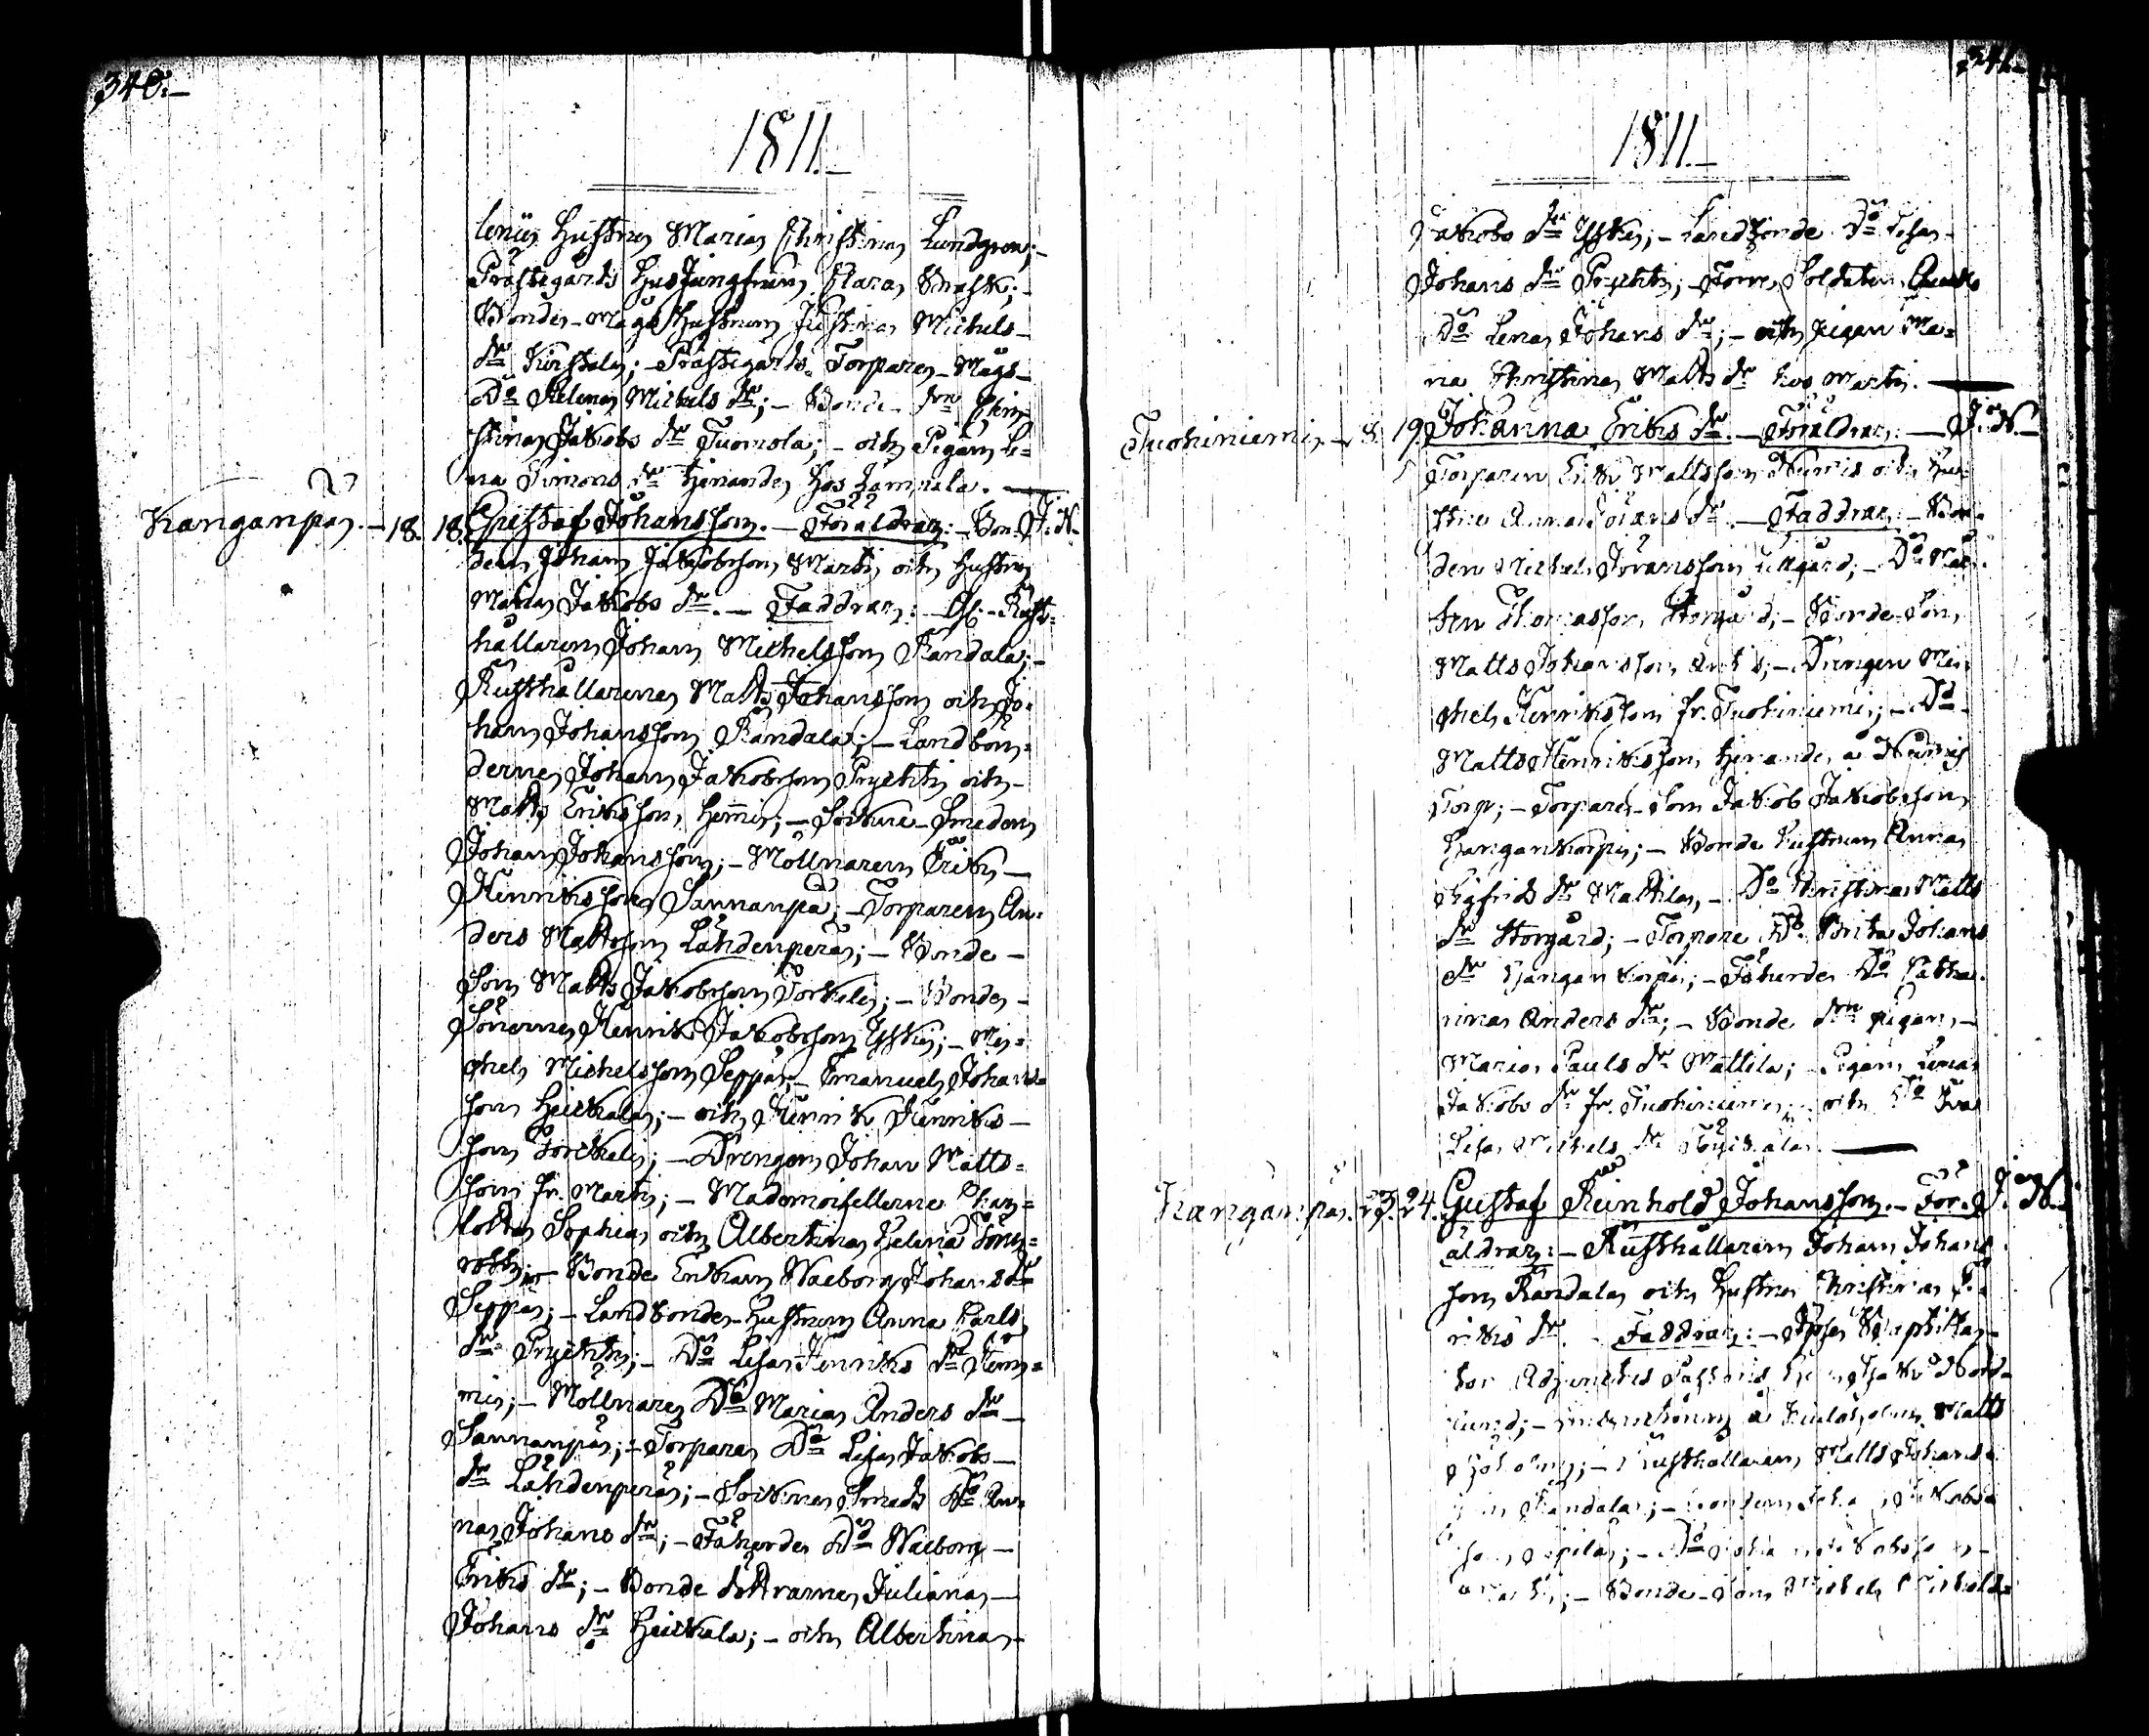 340.
1811.
lenii Hustru Maria Christina Lundgren;
Prästegårds HusJungfrun Clara Krask;
Bonde-Mågs Hustrun Justina Michels
dr Keiskala; Prästegårds Torpare-Mågs
Do Helena Michels dr; Bonde drn Chri
stina Jakobs dr Tuomola; och Pigan Le=
na Simons dr tjenande hos Lammala.
Kanganpää. 18. 18. Gustaf Johansson. Föräldrar: Bon J. N.
den Johan Jakobsson Martti och Hustru
Maria Jakobs dr. Faddrar: Rust=
hållaren Johan Michelsson Randala;
Rusthållarene Matts Johansson och Jo=
han Johansson Randala; Landbön=
derne Johan Jakobsson Prychti och
Matts Eriksson Hemmi; Sockne-Smeden
Johan Johansson; Möllnaren Erik
Henriksson Sannanpää; Torparen An=
ders Mattsson Lähdenperä; Bonde
Son Matts Jakobsson Torkeli; Bonde
Sönerne Henrik Jakobsson Yski; Mi=
chel Michelsson Seppä; Emanuel Johans=
son Heickala; och Henrik Henriks
son Torckeli; Drengen Johan Matts=
son fr. Martti; Mademoisellerne Char=
lotta Sophia och Albertina Helena
Bonde Enkan Walborg Johans dr
Seppä; Landbonde-Hustrun Anna Carls
dr Prychti; Do Lisa Henriks dr Hem=
mi; Möllnare Do Maria Anders dr
Sannanpää; Torpare Do Lisa Jakobs
dr Lähdenperä; Sockne Smeds Do An=
na Johans dr; Fäherde Do Walborg
Eriks dr; Bonde döttrarne Juliana
Johans dr Heickala; och Albertina
341.
1811.
Jakobs dr Yski; Landbonde Do Lisa
Johans dr Prychti; Förre Soldaten
Do Lena Johans dr; och Pigan Ma=
ria Christina Matts dr hos Martti.
Tuohiniemi 8. 19. Johanna Eriks dr. Föräldrar: J. N.
Torparen Erik Mattsson Nurmis och Hu=
stru Anna Görans dr. Faddrar: Bon=
den Michel Göransson Uttgård; Do
Thomasson Storgård; Bonde-Son
Matts Johansson Antti; Drengen Mi=
chel Henriksson fr. Tuohiniemi; Do
Matts Henriksson tjenande å Nurmis
Torp; Torpare-Son Jakob Jakobsson
Hangankorpi; Bonde Hustrun Anna
Sigfrids dr Mattila, Do Christina Matts
dr Storgård; Torpare Do Brita Johans
dr Hangankorpi; Fäherde Do Catha=
rina Anders dr; Bonde drn Pigan
Maria Pauls dr Mattila; Pigan Lena
Jakobs dr fr. Tuohiniemi; och Do Eva
Lisa Michels dr
Kanganpää. 23. 24. Gustaf Reinhold Johansson. För J. N.
äldrar: Rusthållaren Johan Johans
son Randala och Hustru Christina E=
riks dr. Faddrar:
Adjunctus
lund; Matts
Rusthållaren Matts Johans=
son Randala;
Bonde-Son Michel Michels=